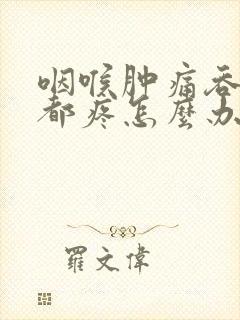 咽喉肿痛吞
都疼怎麼办
羅文偉